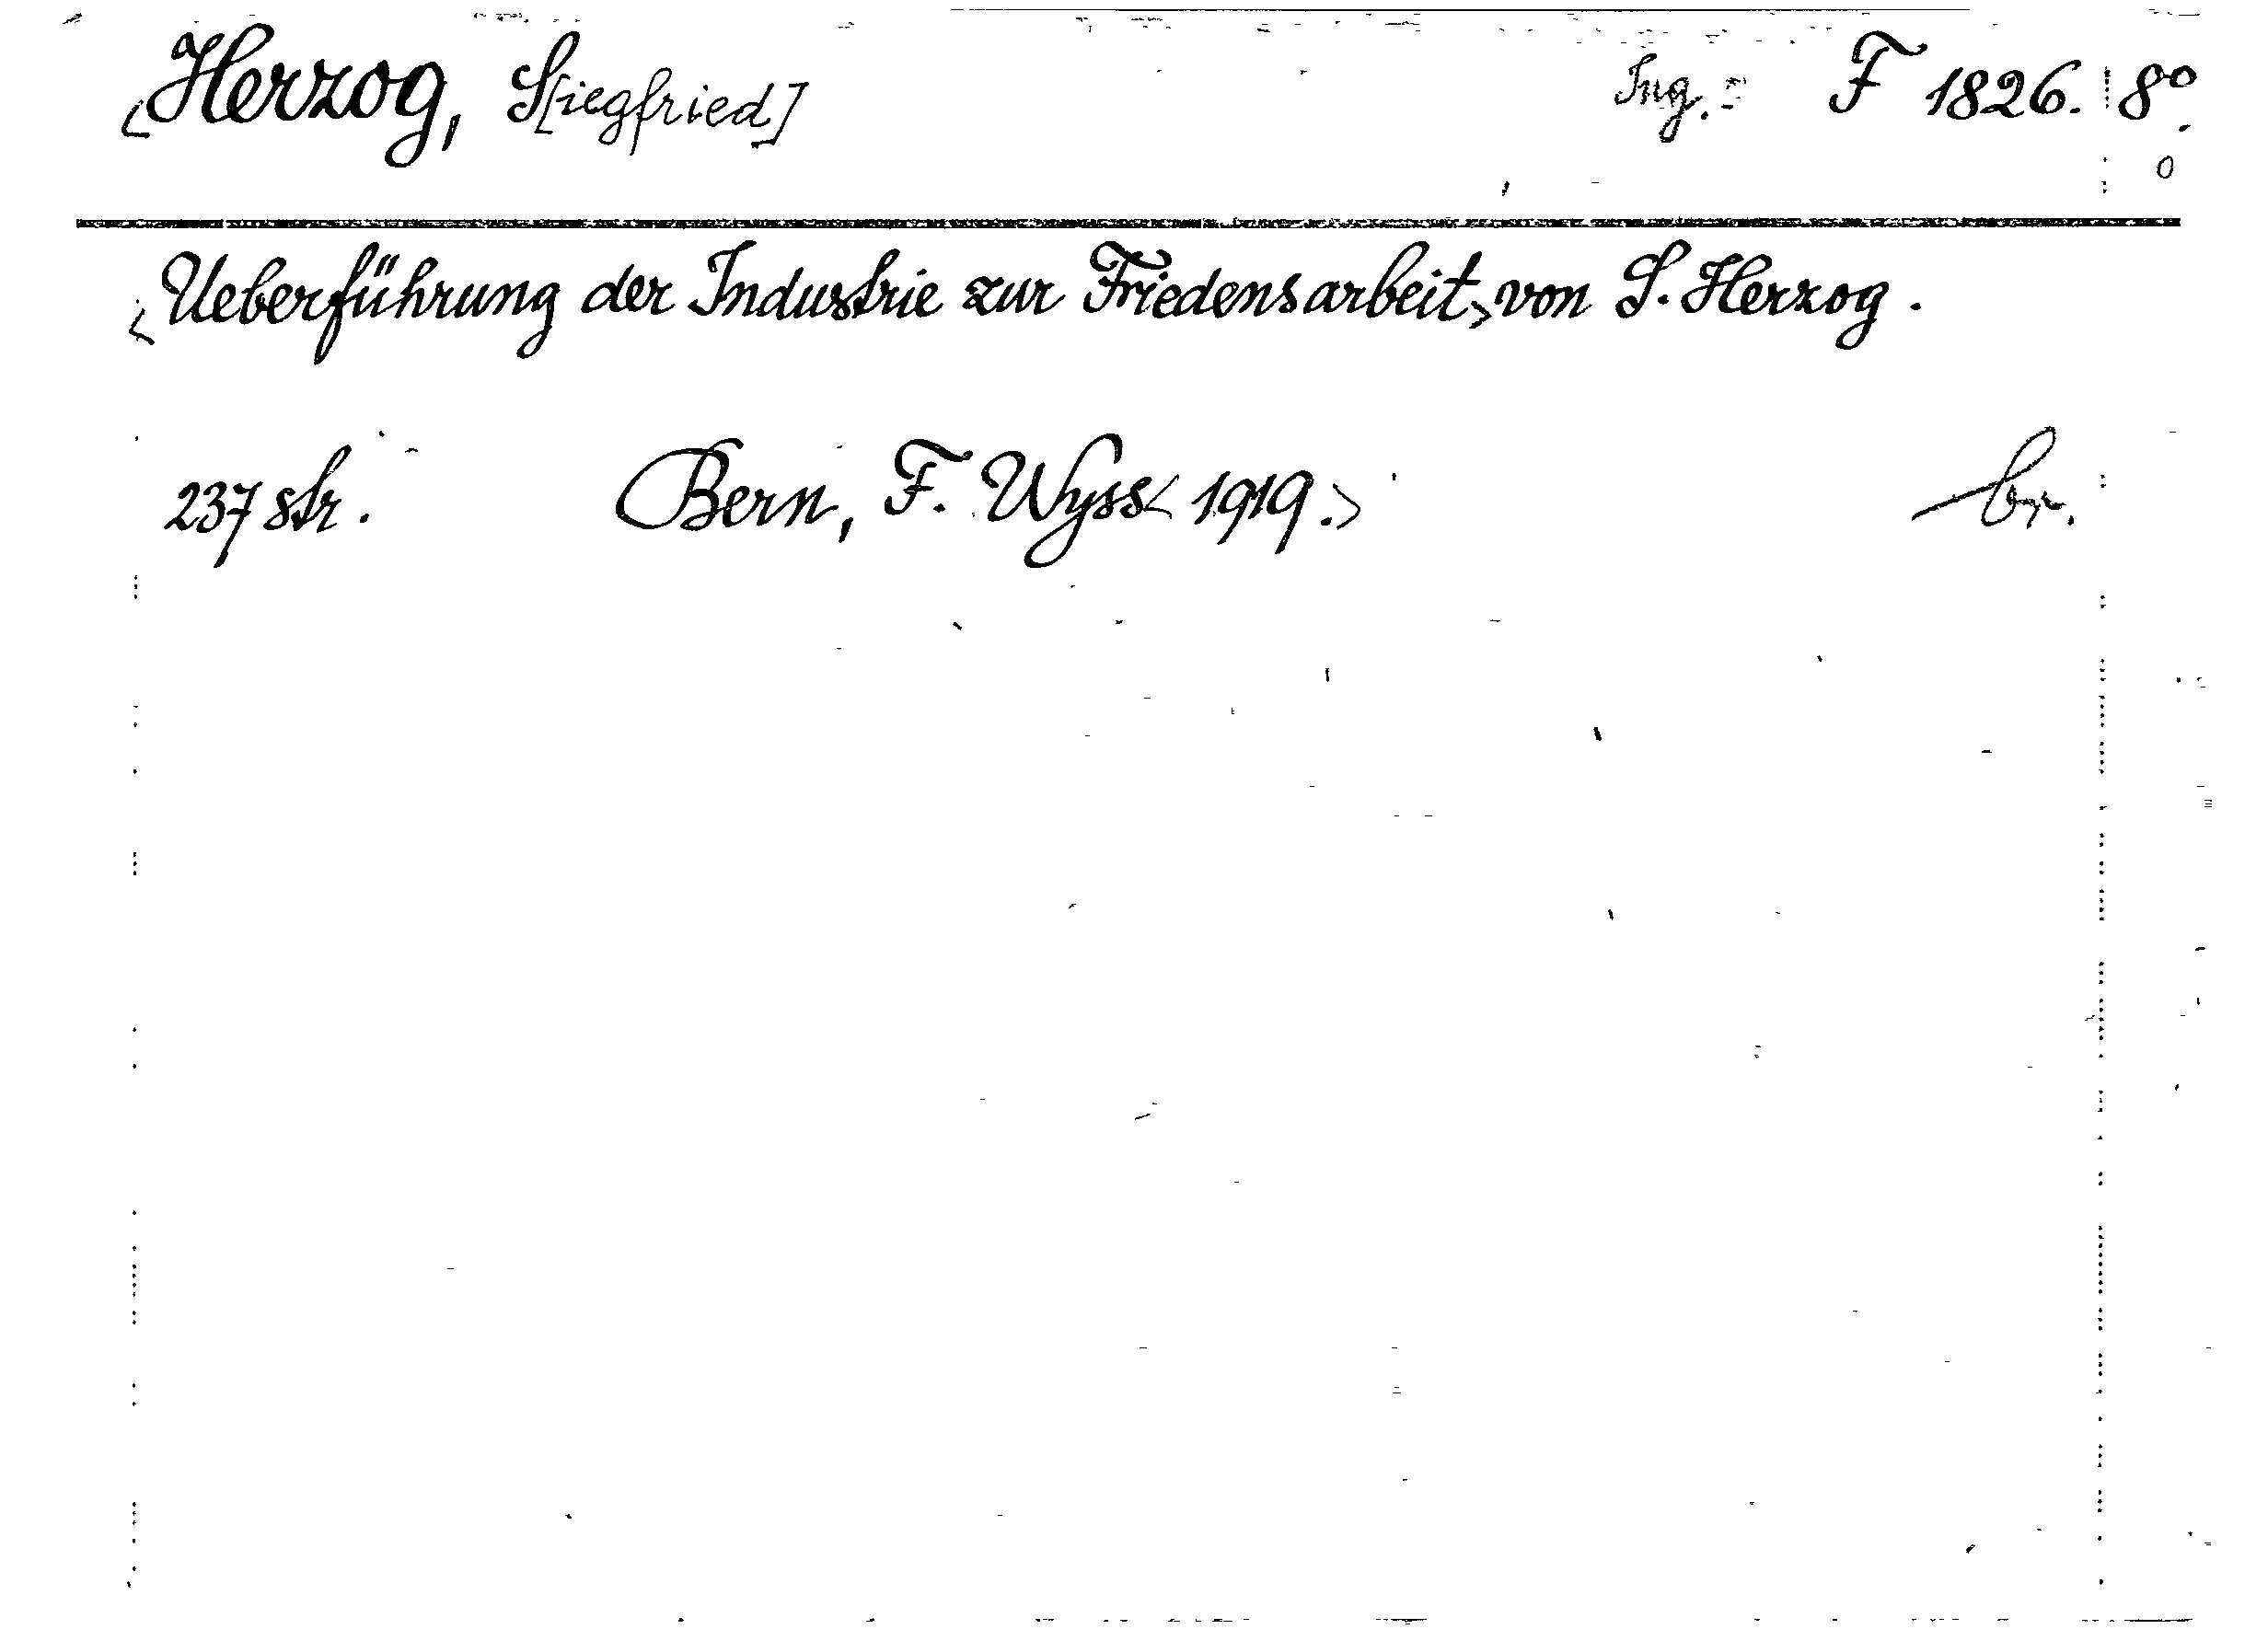 <Herzog, S[iegfried] Ing. F 1826. 8°.
0
<Ueberführung der Industrie zur Friedensarbeit,> von S. Herzog.
237 str. Bern, F. Wyss < 1919.> br.